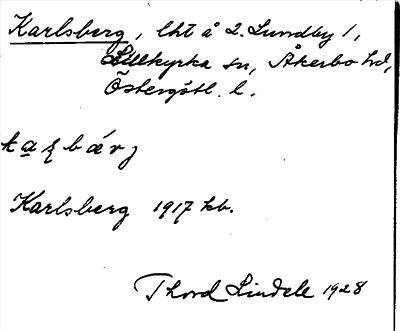 Karlsberg, lht å 2. Lundby 1,
Lillkyrka sn, Åkerbo hd,
Östergötl. l.
Karlsberg 1917 kb.
Thord Lindele 1928